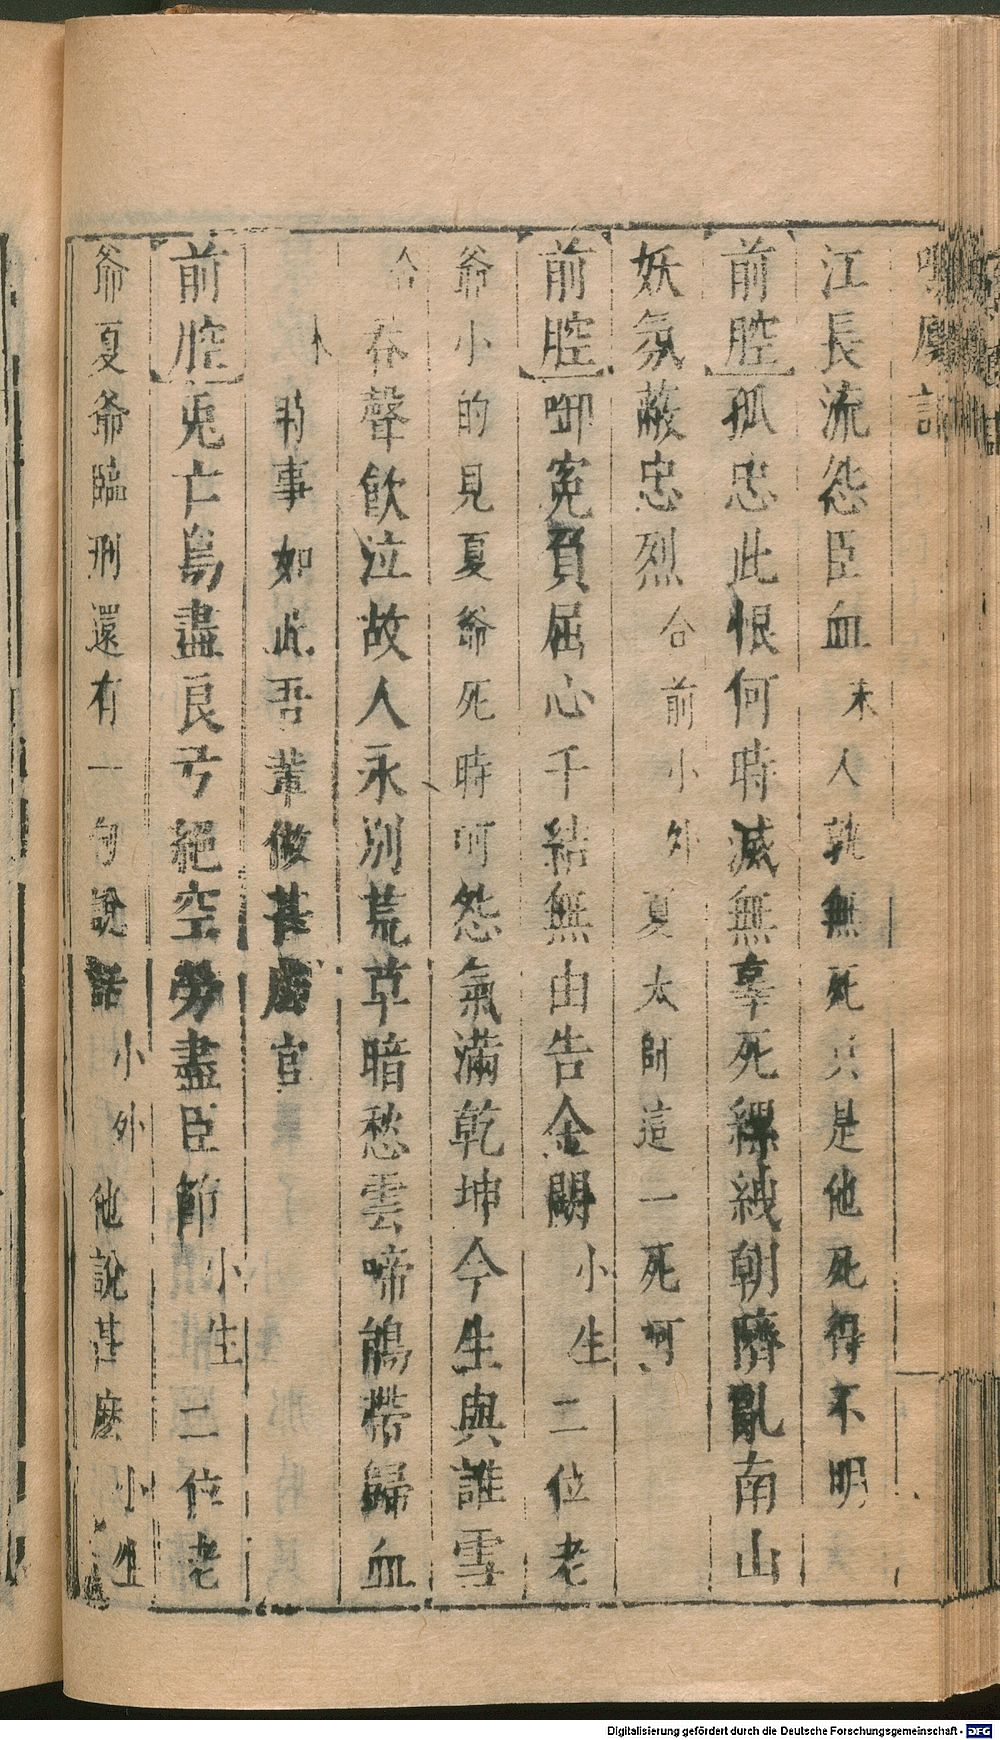 鳴鳳記
江長流怨臣血末人孰無死只是他死得不明
前腔孤忠此恨何時滅無辜死縲絏朝隮亂南山
妖氛蔽忠烈合前小外夏太師這一死呵
前腔啣寃負屈心千結無由告金闕小生二位老
爺小的見夏爺死時呵怨氣滿乾坤今生與誰雪
合吞聲飲泣故人永別荒草暗愁雲啼鵑帶歸血
末時事如此吾輩做甚麼官
前腔兎亡鳥盡良弓絕空勞盡臣節小生二位老
爺夏爺臨刑還有一句說話小外他說甚麼小生
Digitalisierung gefördert durch die Deutsche Forschungsgemeinschaft - DFG